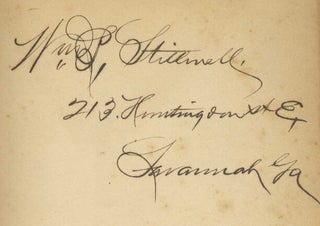 Wm P. Stillwell,
213. Huntingdon St E,
Savannah Ga